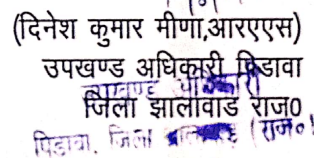 (दिनेश कुमार मीणा,आरएएस)
उपखण्ड अधिकारी पिडावा
जिला झालावाड राज0
पिडावा, जिला (राज०)